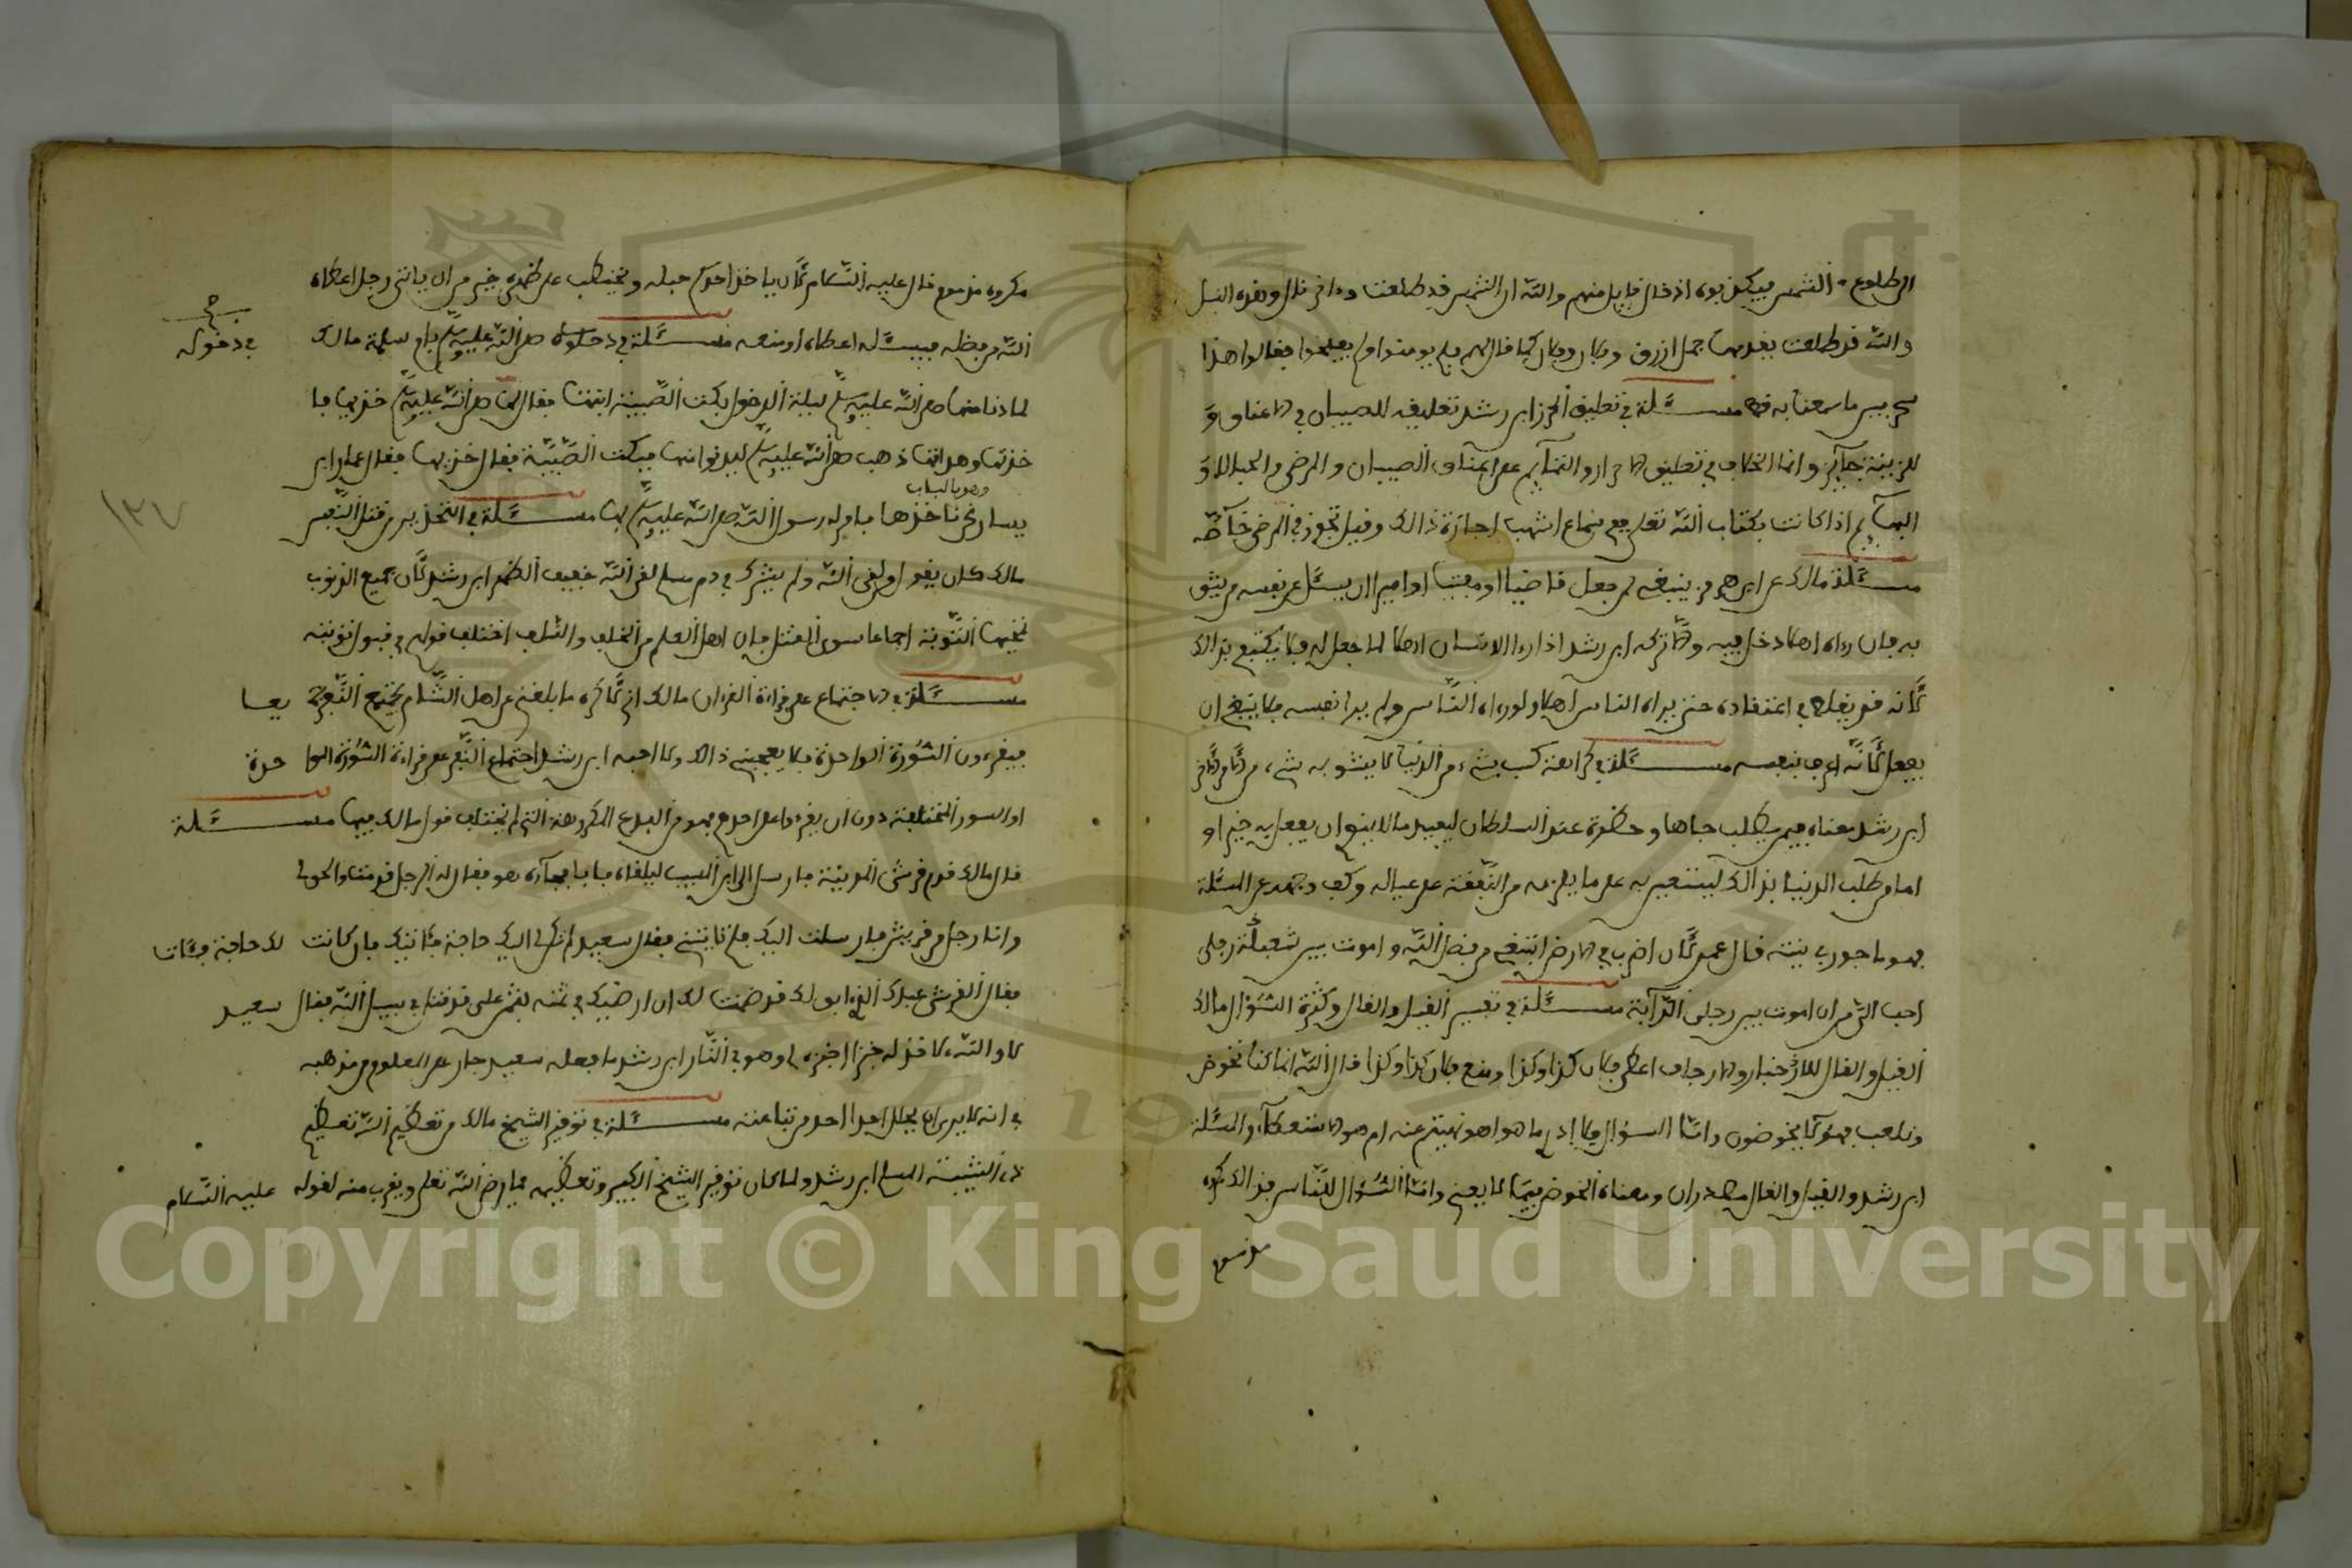 الى طلوع الشمس فيكذبوه اذ قال قايل منهم والله ان الشمس قد طلعت وداخر قال وهذه الابل
والله قد طلعت يقدمها جمل ازرق وفلان وفلان كما قال لهم فلم يومنوا ولم يفلحوا فقالوا هذا
سحر مبين ما سمعنا به قط مسئلة في تعليق الخرز ابن رشد تعليقه للصبيان في الاعناق و
للزينة جائز وانما الخلاف في تعليق الاحراز والتمائم على اعناق الصبيان والمرضى والحبالى او
البهائم اذا كانت بكتاب الله تعلى ففي سماع اشهب اجازة ذالك وقيل تجوز في المرض خاصة
مسئلة مالك عن ابن هرمز ينبغي لمن جعل قاضيا او مفتيا او اميرا ان يسئل عن نفسه من يثق
به فان رءاه اهلا دخل فيه والا تركه ابن رشد اذا رءا الانسان اهلا لما جعل له فلا يكتفي بذالك
لانه قد يغلط في اعتقاده حتى يراه الناس اهلا ولو رءاه الناس ولم يرا نفسه فلا ينبغي ان
يفعل لانه اعرف بنفسه مسئلة في كراهة كسب شيء من الدنيا لا يشوبه شيء من الاخرة
ابن رشد معناه فيمن يطلب جاها وحظوة عند السلطان ليفيد مالا لا ينوي ان يفعل به خيرا و
اما من طلب الدنيا بذالك ليستعين به على ما يلزمه من النفقة على عياله وكف وجهه عن المسئلة
فهو ماجور بنيته قال عمر لان اضرب في الارض ابتغي من فضل الله واموت بين شعبتي رحلي
احب الي من ان اموت بين رجلي الدابة مسئلة في تفسير القيل والقال وكثرة السؤال مالك
القيل والقال للاخبار والارجاف اعطى فلان كذا وكذا ومنع فلان كذا وكذا قال الله انما كنا نخوض
ونلعب فهؤلاء يخوضون واما السؤال فلا ادري ما هو اهو نهيتم عنه ام هو الاستعطاء والمسئلة
ابن رشد والقيل والقال مصدران ومعناه الخوض فيما لا يعني واما السؤال للناس فذالك مكروه
مكروه ممنوع قال عليه السلام لان ياخذ احدكم حبله ويحتطب على ظهره خير من ان ياتي رجلا اعطاه
الله من فضله فيسئله اعطاه او منعه مسئلة في دخوله صلى الله عليه وسلم بام سلمة مالك
في دخوله
لما دنا منها صلى الله عليه وسلم ليلة الدخول بكت الصبية ابنتها فقال لها صلى الله عليه وسلم خذيها فا
خذتها وهدأتها ذهب صلى الله عليه وسلم ليدنوا منها فبكت الصبية فقال خذيها فقال عمار ابن
وهو بالباب
يسار نحن ناخذها يا رسول الله صلى الله عليه وسلم بها مسئلة في التحذير من قتل النفس
مالك كان يقول من لقي الله ولم يشرك في دم مسلم لقي الله خفيف الظهر ابن رشد لان جميع الذنوب
تمحيها التوبة اجماعا سوى القتل فان اهل العلم من الخلف والسلف اختلف قولهم في قبول توبته
مسئلة في الاجتماع على قراءة القرءان مالك اني لاكره ما بلغني عن اهل الشام يجتمع النفر جميعا
فيقرءون السورة الواحدة فلا يعجبني ذالك ولا احبه ابن رشد اجتماع النفر على قراءة السورة الواحدة
او السور المختلفة دون ان يقرءوا على احدهم فهو من البدع المكروهة التي لم يختلف قول مالك فيها مسئلة
قال مالك قدم قرشي المدينة فارسل الى ابن المسيب ليلقاه فابى فجاءه هو فقال له الرجل قدمت
وانا رجل من قريش فارسلت اليك فلم تاتني فقال سعيد لم تكن لي اليك حاجة فئاتيك فان كانت لك حاجة فئات
فقال القرشي عبدك الذي ابق لك قد ضمنت لك ان ارضيك في ثمنه فقال سعيد
لا والله لا
في انه لا يرى ان يحلل احدا احد من تباعته مسئلة في توقير الشيخ مالك من تعظيم الله تعظيم
ذي الشيبة المسلم ابن رشد ولما كان توقير الشيخ الكبير وتعظيمه مما يرضي الله تعلى ويقرب منه لقوله عليه السلام
١٣٧
Copyright © King Saud University
1957